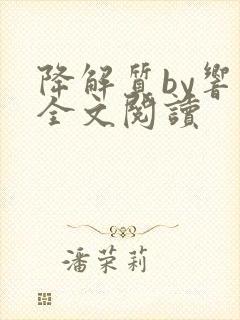 降解質by響
全文閱讀
潘荣莉